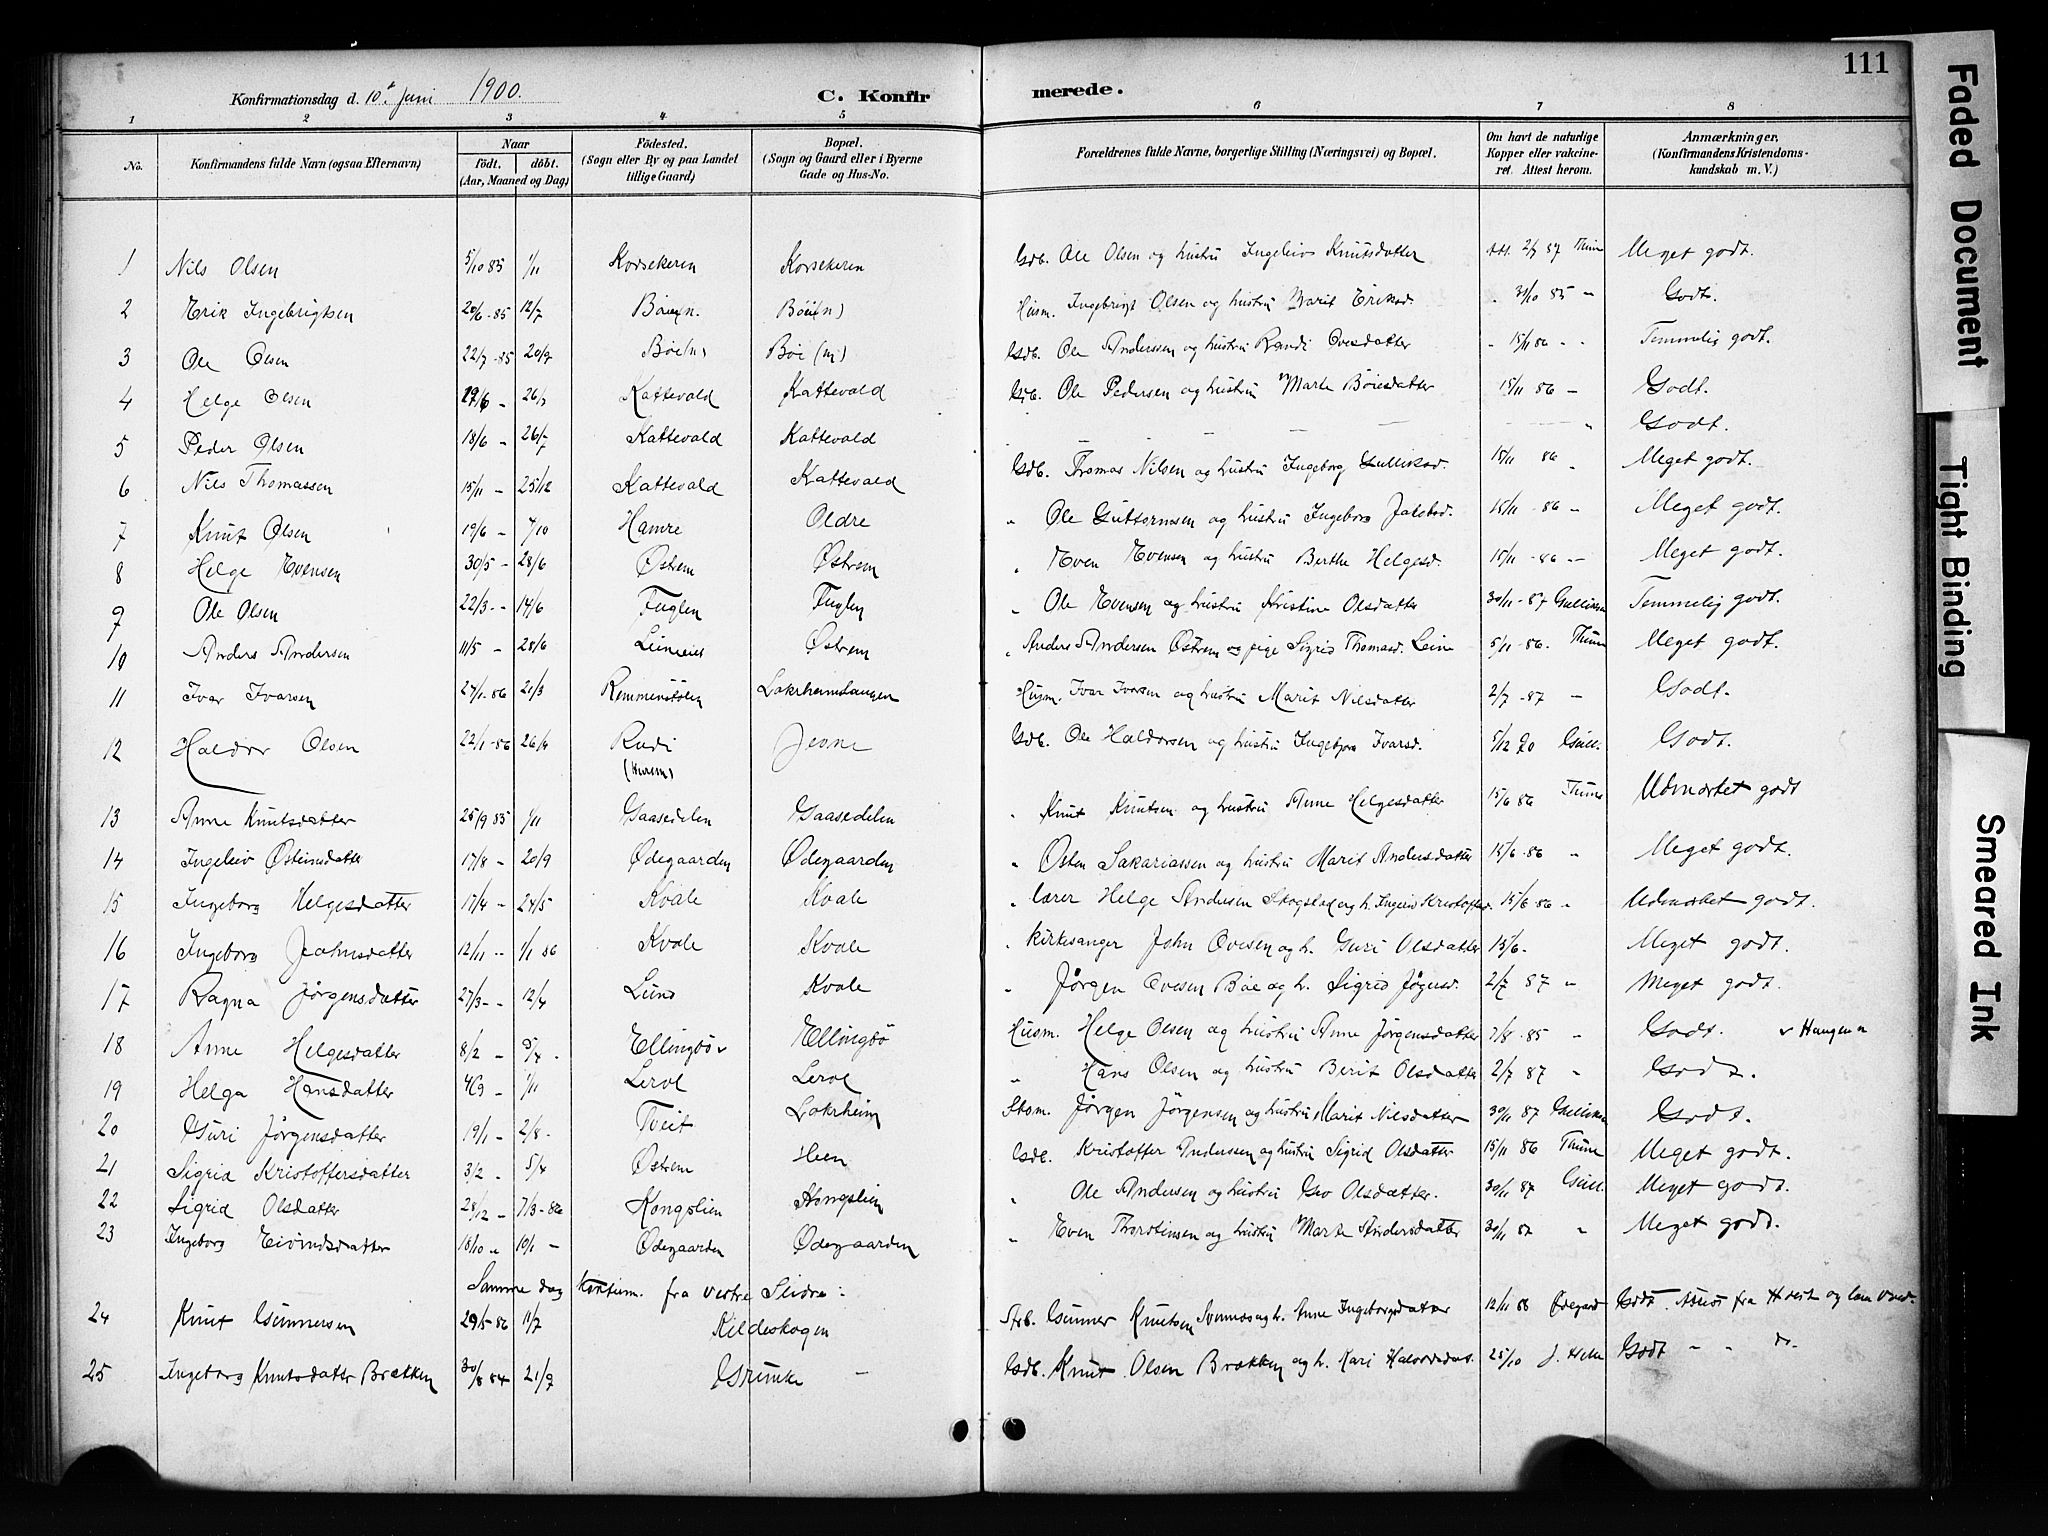 111
Konfirmationsdag d. 10de Juni 1900. C. Konfirmerede.
1 2 3 4 5 6 7 8
No. Konfirmandens fulde Navn (ogsaa Efternavn) Naar födt. döbt. (Aar, Maaned og Dag) Födested. (Sogn eller By og paa Landet tillige Gaard) Bopæl. (Sogn og Gaard eller i Byerne Gade og Hus-No. Forældrenes fulde Navne, borgerlige Stilling (Næringsvei) og Bopæl. Om havt de naturlige Kopper eller vakcineret. Attest herom. Anmærkninger. (Konfirmandens Kristendomskundskab m. V.)
1 Nils Olsen 5/10 85 1/11 Korsekeren Korsekeren Gdb. Ole Olsen og hustru Ingeleiv Knutsdatter Att. 2/7 87 Thune Meget godt.
2 Erik Ingebrigtsen 20/6 - 85 12/7 Böie(n. Böie(n) Husm. Ingebrigt Olsen og hustru Marit Eriksd. " 31/10 85 " Godt.
3 Ole Olsen 22/7 - 85 20/9 Böi(n) Böi (n) Gdb. Ole Anderssen og hustru Randi Ovesdatter " 15/11 86 " Temmelig godt.
4 Helge Olsen 19/6 - 26/7 Kattevold Kattevold Gdb. Ole Pedersen og hustru Marte Böiesdatter 15/11 86 - Godt.
5 Peder Olsen 18/6 - 26/7 Kattevold Kattevold - - - - - " Godt.
6 Nils Thomassen 15/11 - 25/12 Kattevold Kattevold Gdb. Thomas Nilsen og hustru Ingeborg Gulliksd. 15/11 86 " Meget godt.
7 Knut Olsen 19/6 - 4/10 Hamre Oldre " Ole Guttormsen og hustru Ingeborg Jakobsd. 15/11 - 86 " Meget godt.
8 Helge Evensen 30/5 - 28/6 Østrem Østrem " Even Evensen og hustru Berthe Helgesd. 15/11 - 86 - Meget godt.
9 Ole Olsen 22/3 - - 14/6 Fuglen Fuglen " Ole Evensen og hustru Kristine Olsdatter 30/11 - 87 Gulliksen Temmelig godt.
10 Anders Andersen 11/5 - 28/6 Leineeiet Østrem " Anders Andersen Østrem og pige Sigrid Thomasd. Leine 5/11 - 86. Thune Meget godt.
11 Ivar Ivarsen 27/1 - 86 21/3 Lokrheimshaugen Husm. Ivar Ivarsen og hustru Marit Nilsdatter 2/7 - 87 " Godt.
12 Haldor Olsen 22/1 - 86 26/4 Rudi (Hurum) Jevne Gdb. Ole Haldorsen og hustru Ingebjørg Ivarsd. 5/12 90 Gull. Godt.
13 Anne Knutsdatter 25/9 85 1/11 Gaasedelen Gaasedelen " Knut Knutsen og hustru Anne Helgesdatter 15/6 86 Thune Udmærket godt
14 Ingeleiv Østensdatter 17/8 - 20/9 Ødegaarden Ødegaarden " Østen Sakariassen og hustru Marit Andersdatter 15/6 - 86 " Meget godt.
15 Ingeborg Helgesdatter 17/4 - 24/5 Kvale Kvale " lærer Helge Andersen Skogstad og h. Ingeleiv Kristoffersd. 15/6 86 " Udmærket godt.
16 Ingeborg Johnsdatter 12/11 - - 1/1 86 Kvale Kvale " kirkesanger John Ovesen og h. Guri Olsdatter 15/6 - Meget godt.
17 Ragna Jörgensdatter 27/3 - - 12/4 Lund Kvale " Jörgen Ovesen Böe og h. Sigrid Jögensd. 2/7 87 " Meget godt.
18 Anne Helgesdatter 8/2 - 5/4 - Ellingbö Ellingbö Husm. Helge Olsen og hustru Anne Jörgensdatter 7/8 - 85 " Godt. v Haugen
19 Helga Hansdatter 4/9 - 1/11 Lerol Lerol " Hans Olsen og hustru Berit Olsdatter 2/7 87 " Godt.
20 Guri Jörgensdatter 19/1 - 2/8 - Tveit Lokrheim Skom. Jörgen Jörgensen og hustru Marit Nilsdatter 30/11 87 Gulliksen Godt.
21 Sigrid Kristoffersdatter 3/2 - 5/4 Østrem Heen Gdb. Kristoffer Anderssen og hustru Sigrid Olsdatter 15/11 86 Thune Meget godt.
22 Sigrid Olsdatter 28/12 - 7/3 - 86 Kongslien Kongslien " Ole Andersen og hustru Gro Olsdatter. 30/11 87 Gull. Meget godt.
23 Ingeborg Eivindsdatter 18/10 " 10/1 - Ødegaarden Ødegaarden " Even Thorstensen og hustru Marte Andersdatter 30/11 87 " Meget godt.
Samme dag konfirm. fra vestre Slidre:
24 Knut Gunnersen 29/5 - 86 11/7 Kildeskogen Arb. Gunner Knutsen og h. Anne Ingeborgsdatter 12/11 88 Ødegaard Godt. Attest fra
25 Ingeborg Knutsdatter Brækken 30/8 84 21/9 Grunke - Gdb. Knut Olsen Brækken og h. Kari 25/10 J. Godt - " do.
Faded Document
Tight Binding
Smeared Ink